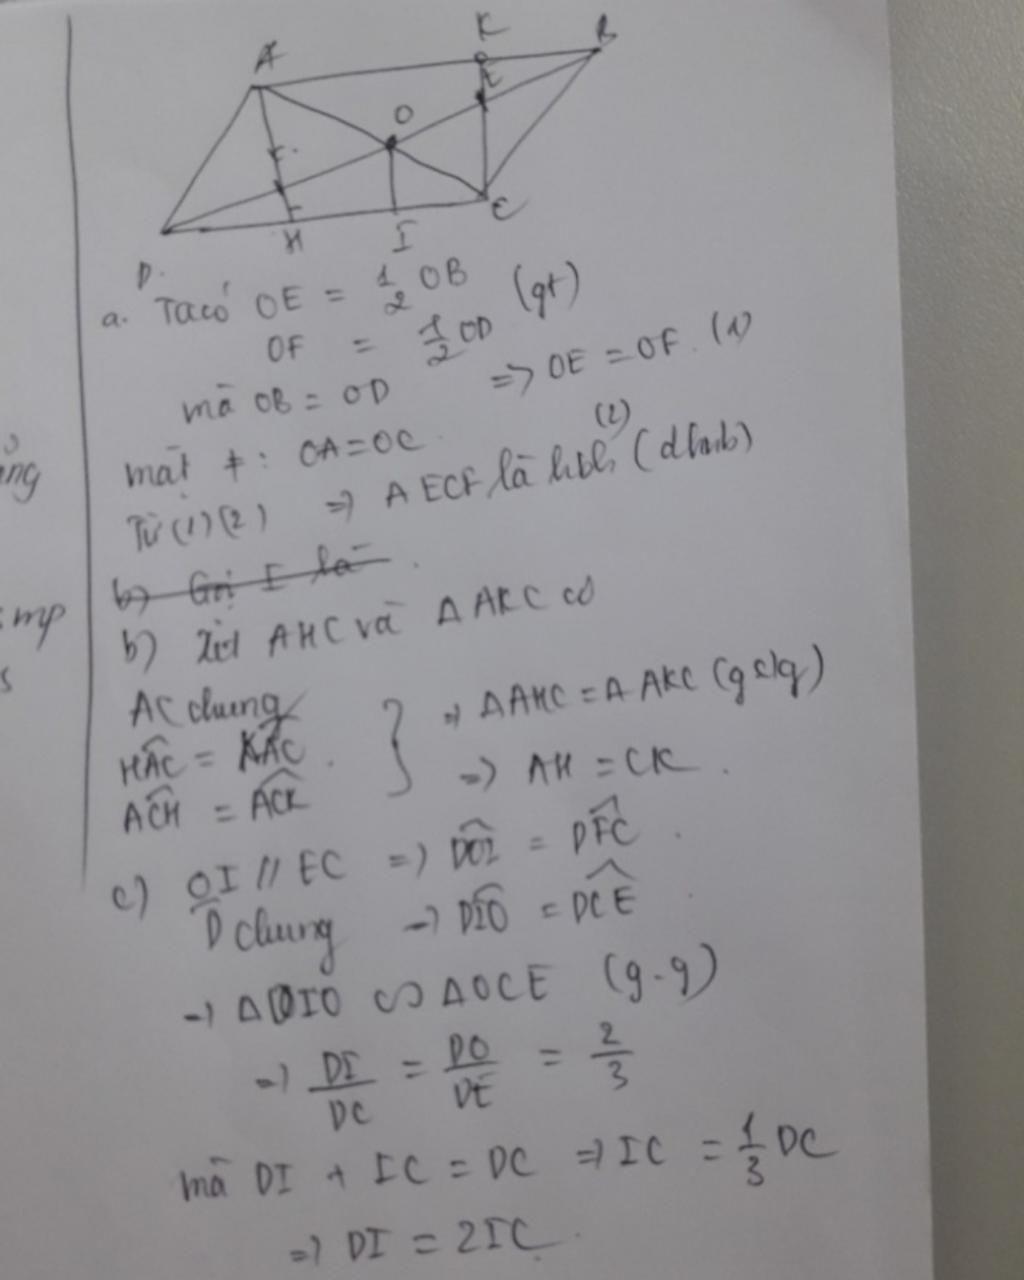 A
K
B
E
O
F
H
I
C
D.
a. Ta có OE = 1/2 OB
(gt)
OF = 1/2 OD
mà OB = OD => OE = OF. (1)
mặt ≠: OA = OC (2)
Từ (1)(2) => AECF là hbh (dhnb)
b) Gọi I là
b) Xét AHC và Δ AKC có
AC chung
HAC = KAC.
ACH = ACK
=> ΔAHC = Δ AKC (gclg)
=> AH = CK.
c) OI // EC => DOI = DFC.
D chung => DIO = DCE
=> ΔDIO ∽ ΔOCE (g.g)
=> DI/DC = DO/DE = 2/3
mà DI + IC = DC => IC = 1/3 DC
=> DI = 2IC.
ng
mp
s